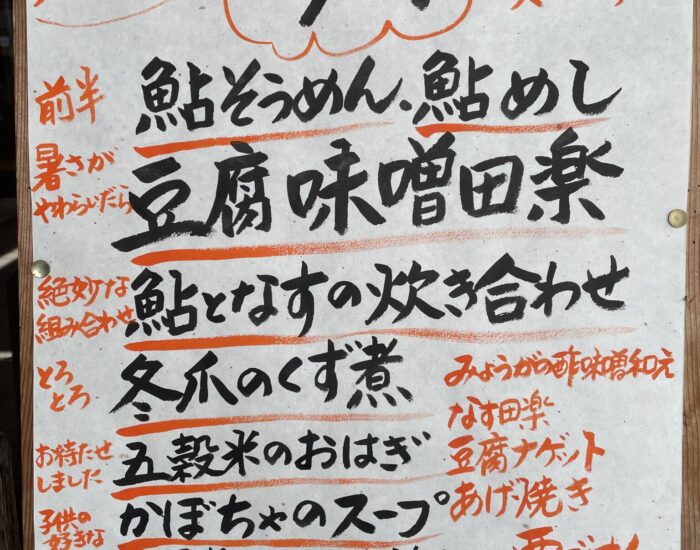 前半
鮎そうめん、鮎めし
暑さが
やわらいだら
豆腐味噌田楽
絶妙な
組み合わせ
鮎となすの炊き合わせ
とろ
とろ
冬爪のくず煮
みょうがの酢味噌和え
なす田楽
お待たせ
しました
五穀米のおはぎ
豆腐ナゲット
子供の
好きな
かぼちゃのスープ
あげ焼き